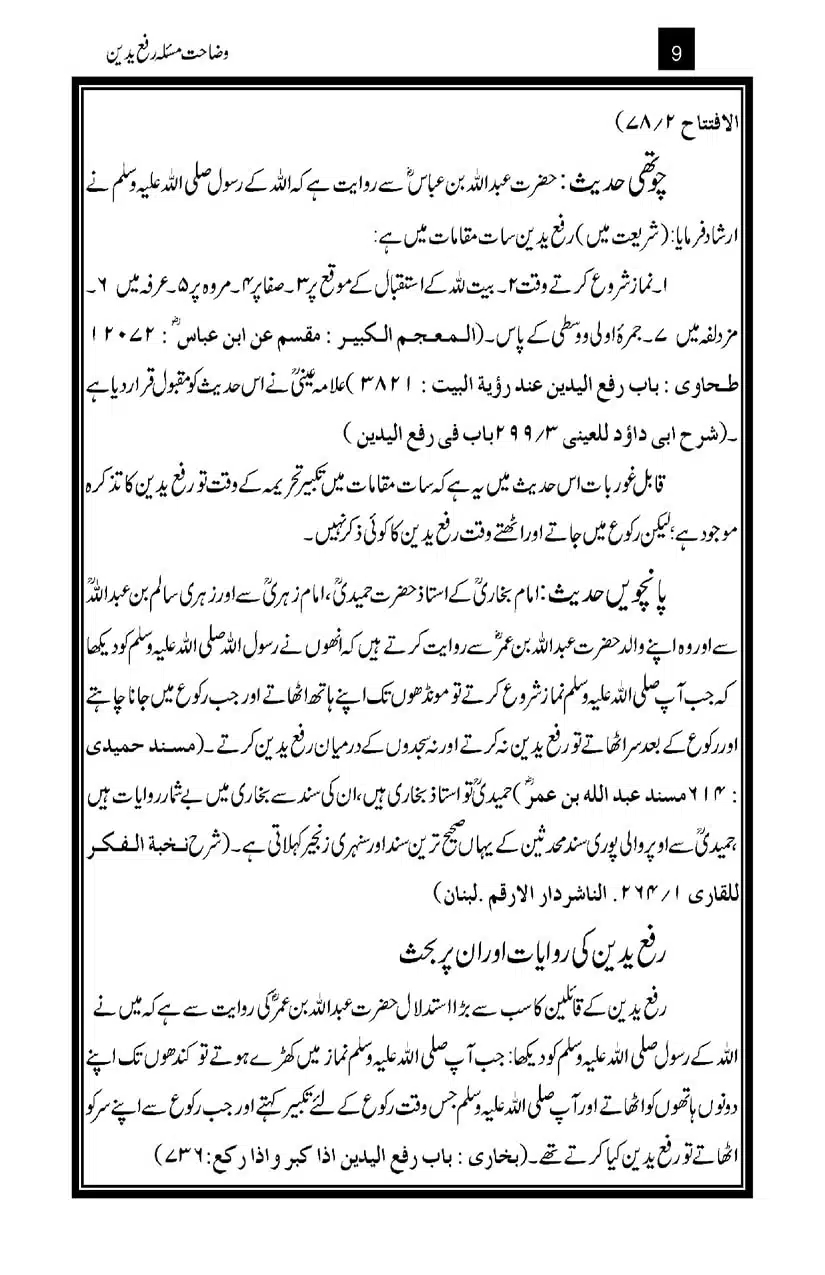 وضاحت مسئلہ رفع یدین
9
الافتتاح ۷۸/۲)
چوتھی حدیث : حضرت عبداللہ بن عباسؓ سے روایت ہے کہ اللہ کے رسول صلی اللہ علیہ وسلم نے
ارشاد فرمایا: (شریعت میں) رفع یدین سات مقامات میں ہے:
۱۔ نماز شروع کرتے وقت ۲۔ بیت للہ کے استقبال کے موقع پر ۳۔ صفا پر ۴۔ مروہ پر ۵۔ عرفہ میں ۶۔
مزدلفہ میں ۷۔ جمرۂ اولی ووسطی کے پاس۔ (المعجم الکبیر : مقسم عن ابن عباسؓ : ۱۲۰۷۲
طحاوی : باب رفع الیدین عند رؤیة البیت : ۳۸۲۱) علامہ عینیؒ نے اس حدیث کو مقبول قرار دیا ہے
۔(شرح ابی داؤد للعینی ۲۹۹/۳ باب فی رفع الیدین )
قابل غور بات اس حدیث میں یہ ہے کہ سات مقامات میں تکبیر تحریمہ کے وقت تو رفع یدین کا تذکرہ
موجود ہے؛ لیکن رکوع میں جاتے اور اٹھتے وقت رفع یدین کا کوئی ذکر نہیں۔
پانچویں حدیث: امام بخاریؒ کے استاذ حضرت حمیدیؒ، امام زہریؒ سے اور زہری سالم بن عبداللہؒ
سے اور وہ اپنے والد حضرت عبداللہ بن عمرؓ سے روایت کرتے ہیں کہ انھوں نے رسول اللہ صلی اللہ علیہ وسلم کو دیکھا
کہ جب آپ صلی اللہ علیہ وسلم نماز شروع کرتے تو مونڈھوں تک اپنے ہاتھ اٹھاتے اور جب رکوع میں جانا چاہتے
اور رکوع کے بعد سر اٹھاتے تو رفع یدین نہ کرتے اور نہ سجدوں کے درمیان رفع یدین کرتے۔ (مسند حمیدی
: ۶۱۴ مسند عبد الله بن عمرؓ) حمیدیؒ تو استاذ بخاری ہیں، ان کی سند سے بخاری میں بے شمار روایات ہیں
،حمیدیؒ سے اوپر والی پوری سند محدثین کے یہاں صحیح ترین سند اور سنہری زنجیر کہلاتی ہے۔ (شرح نخبة الفکر
للقاری ۲۶۴/۱. الناشر دار الارقم .لبنان)
رفع یدین کی روایات اور ان پر بحث
رفع یدین کے قائلین کا سب سے بڑا استدلال حضرت عبداللہ بن عمرؓ کی روایت سے ہے کہ میں نے
اللہ کے رسول صلی اللہ علیہ وسلم کو دیکھا: جب آپ صلی اللہ علیہ وسلم نماز میں کھڑے ہوتے تو کندھوں تک اپنے
دونوں ہاتھوں کو اٹھاتے اور آپ صلی اللہ علیہ وسلم جس وقت رکوع کے لئے تکبیر کہتے اور جب رکوع سے اپنے سر کو
اٹھاتے تو رفع یدین کیا کرتے تھے۔ (بخاری : باب رفع الیدین اذا کبر و اذا رکع: ۷۳۶)